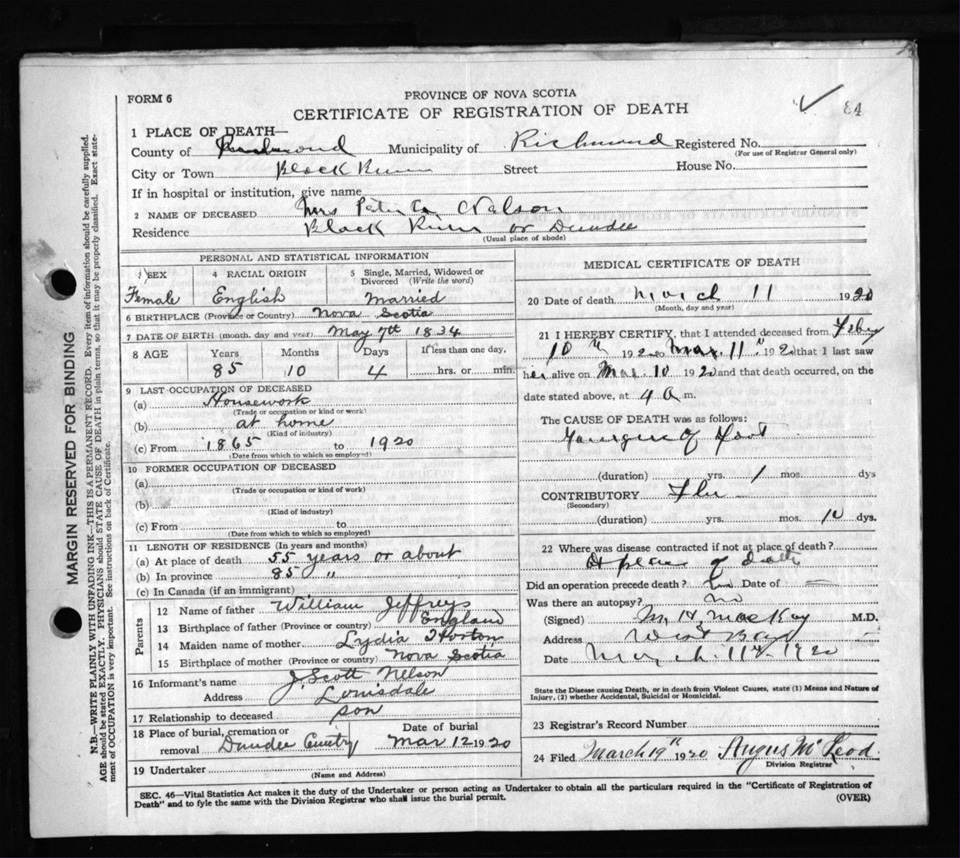 FORM 6
PROVINCE OF NOVA SCOTIA
CERTIFICATE OF REGISTRATION OF DEATH
84
1 PLACE OF DEATH—
County of Richmond Municipality of Richmond Registered No.
(For use of Registrar General only)
City or Town Black River Street House No.
If in hospital or institution, give name
2 NAME OF DECEASED Mrs Peter Nelson
Residence Black River or Dundee
(Usual place of abode)
PERSONAL AND STATISTICAL INFORMATION
3 SEX 4 RACIAL ORIGIN 5 Single, Married, Widowed or Divorced (Write the word)
Female English Married
6 BIRTHPLACE (Province or Country) Nova Scotia
7 DATE OF BIRTH (month, day and year) May 7th 1834
8 AGE Years Months Days If less than one day,
85 10 4 hrs. or min.
9 LAST OCCUPATION OF DECEASED
(a) Housework
(Trade or occupation or kind or work)
(b) at home
(Kind of industry)
(c) From 1865 to 1920
(Date from which to which so employed)
10 FORMER OCCUPATION OF DECEASED
(a)
(Trade or occupation or kind of work)
(b)
(Kind of industry)
(c) From to
(Date from which to which so employed)
11 LENGTH OF RESIDENCE (In years and months)
(a) At place of death 55 years or about
(b) In province 85 "
(c) In Canada (if an immigrant)
Parents
12 Name of father William Jeffreys
13 Birthplace of father (Province or country) England
14 Maiden name of mother Lydia Horton
15 Birthplace of mother (Province or country) Nova Scotia
16 Informant's name J. Scott Nelson
Address Louisdale
17 Relationship to deceased son
18 Place of burial, cremation or removal Dundee Cmtry Date of burial Mar 12 1920
19 Undertaker
(Name and Address)
MEDICAL CERTIFICATE OF DEATH
20 Date of death March 11 1920
(Month, day and year)
21 I HEREBY CERTIFY, that I attended deceased from Feby
10th 1920 to Mar. 11" 1920 that I last saw
her alive on Mar. 10 1920 and that death occurred, on the
date stated above, at 4 a m.
The CAUSE OF DEATH was as follows:
Gangrene of Foot
(duration) yrs. 1 mos. dys
CONTRIBUTORY Flu
(Secondary)
(duration) yrs. mos. 10 dys.
22 Where was disease contracted if not at place of death?
At place of death
Did an operation precede death? Date of —
Was there an autopsy? no
(Signed) MacKay M.D.
Address West Bay
Date March 11th 1920
State the Disease causing Death, or in death from Violent Causes, state (1) Means and Nature of Injury, (2) whether Accidental, Suicidal or Homicidal.
23 Registrar's Record Number
24 Filed March 19" 1920 Angus McLeod
Division Registrar
SEC. 46—Vital Statistics Act makes it the duty of the Undertaker or person acting as Undertaker to obtain all the particulars required in the "Certificate of Registration of
Death" and to fyle the same with the Division Registrar who shall issue the burial permit. (OVER)
MARGIN RESERVED FOR BINDING
N.B.—WRITE PLAINLY WITH UNFADING INK—THIS IS A PERMANENT RECORD. Every item of information should be carefully supplied.
AGE should be stated EXACTLY. PHYSICIANS should STATE CAUSE OF DEATH in plain terms, so that it may be properly classified. Exact state-
ment of OCCUPATION is very important. See instructions on back of Certificate.